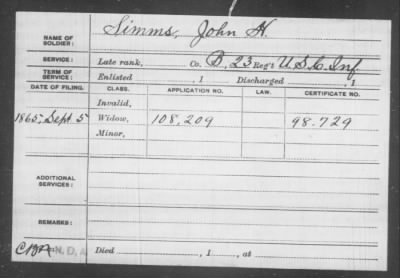 NAME OF SOLDIER: Simms, John H.
SERVICE: Late rank, Co. B, 23 Reg't U.S.C. Inf.
TERM OF SERVICE: Enlisted , 1 Discharged , 1
DATE OF FILING. CLASS. APPLICATION NO. LAW. CERTIFICATE NO.
Invalid,
1865, Sept. 5 Widow, 108,209 98.729
Minor,
ADDITIONAL SERVICES:
REMARKS:
Died , 1 , at